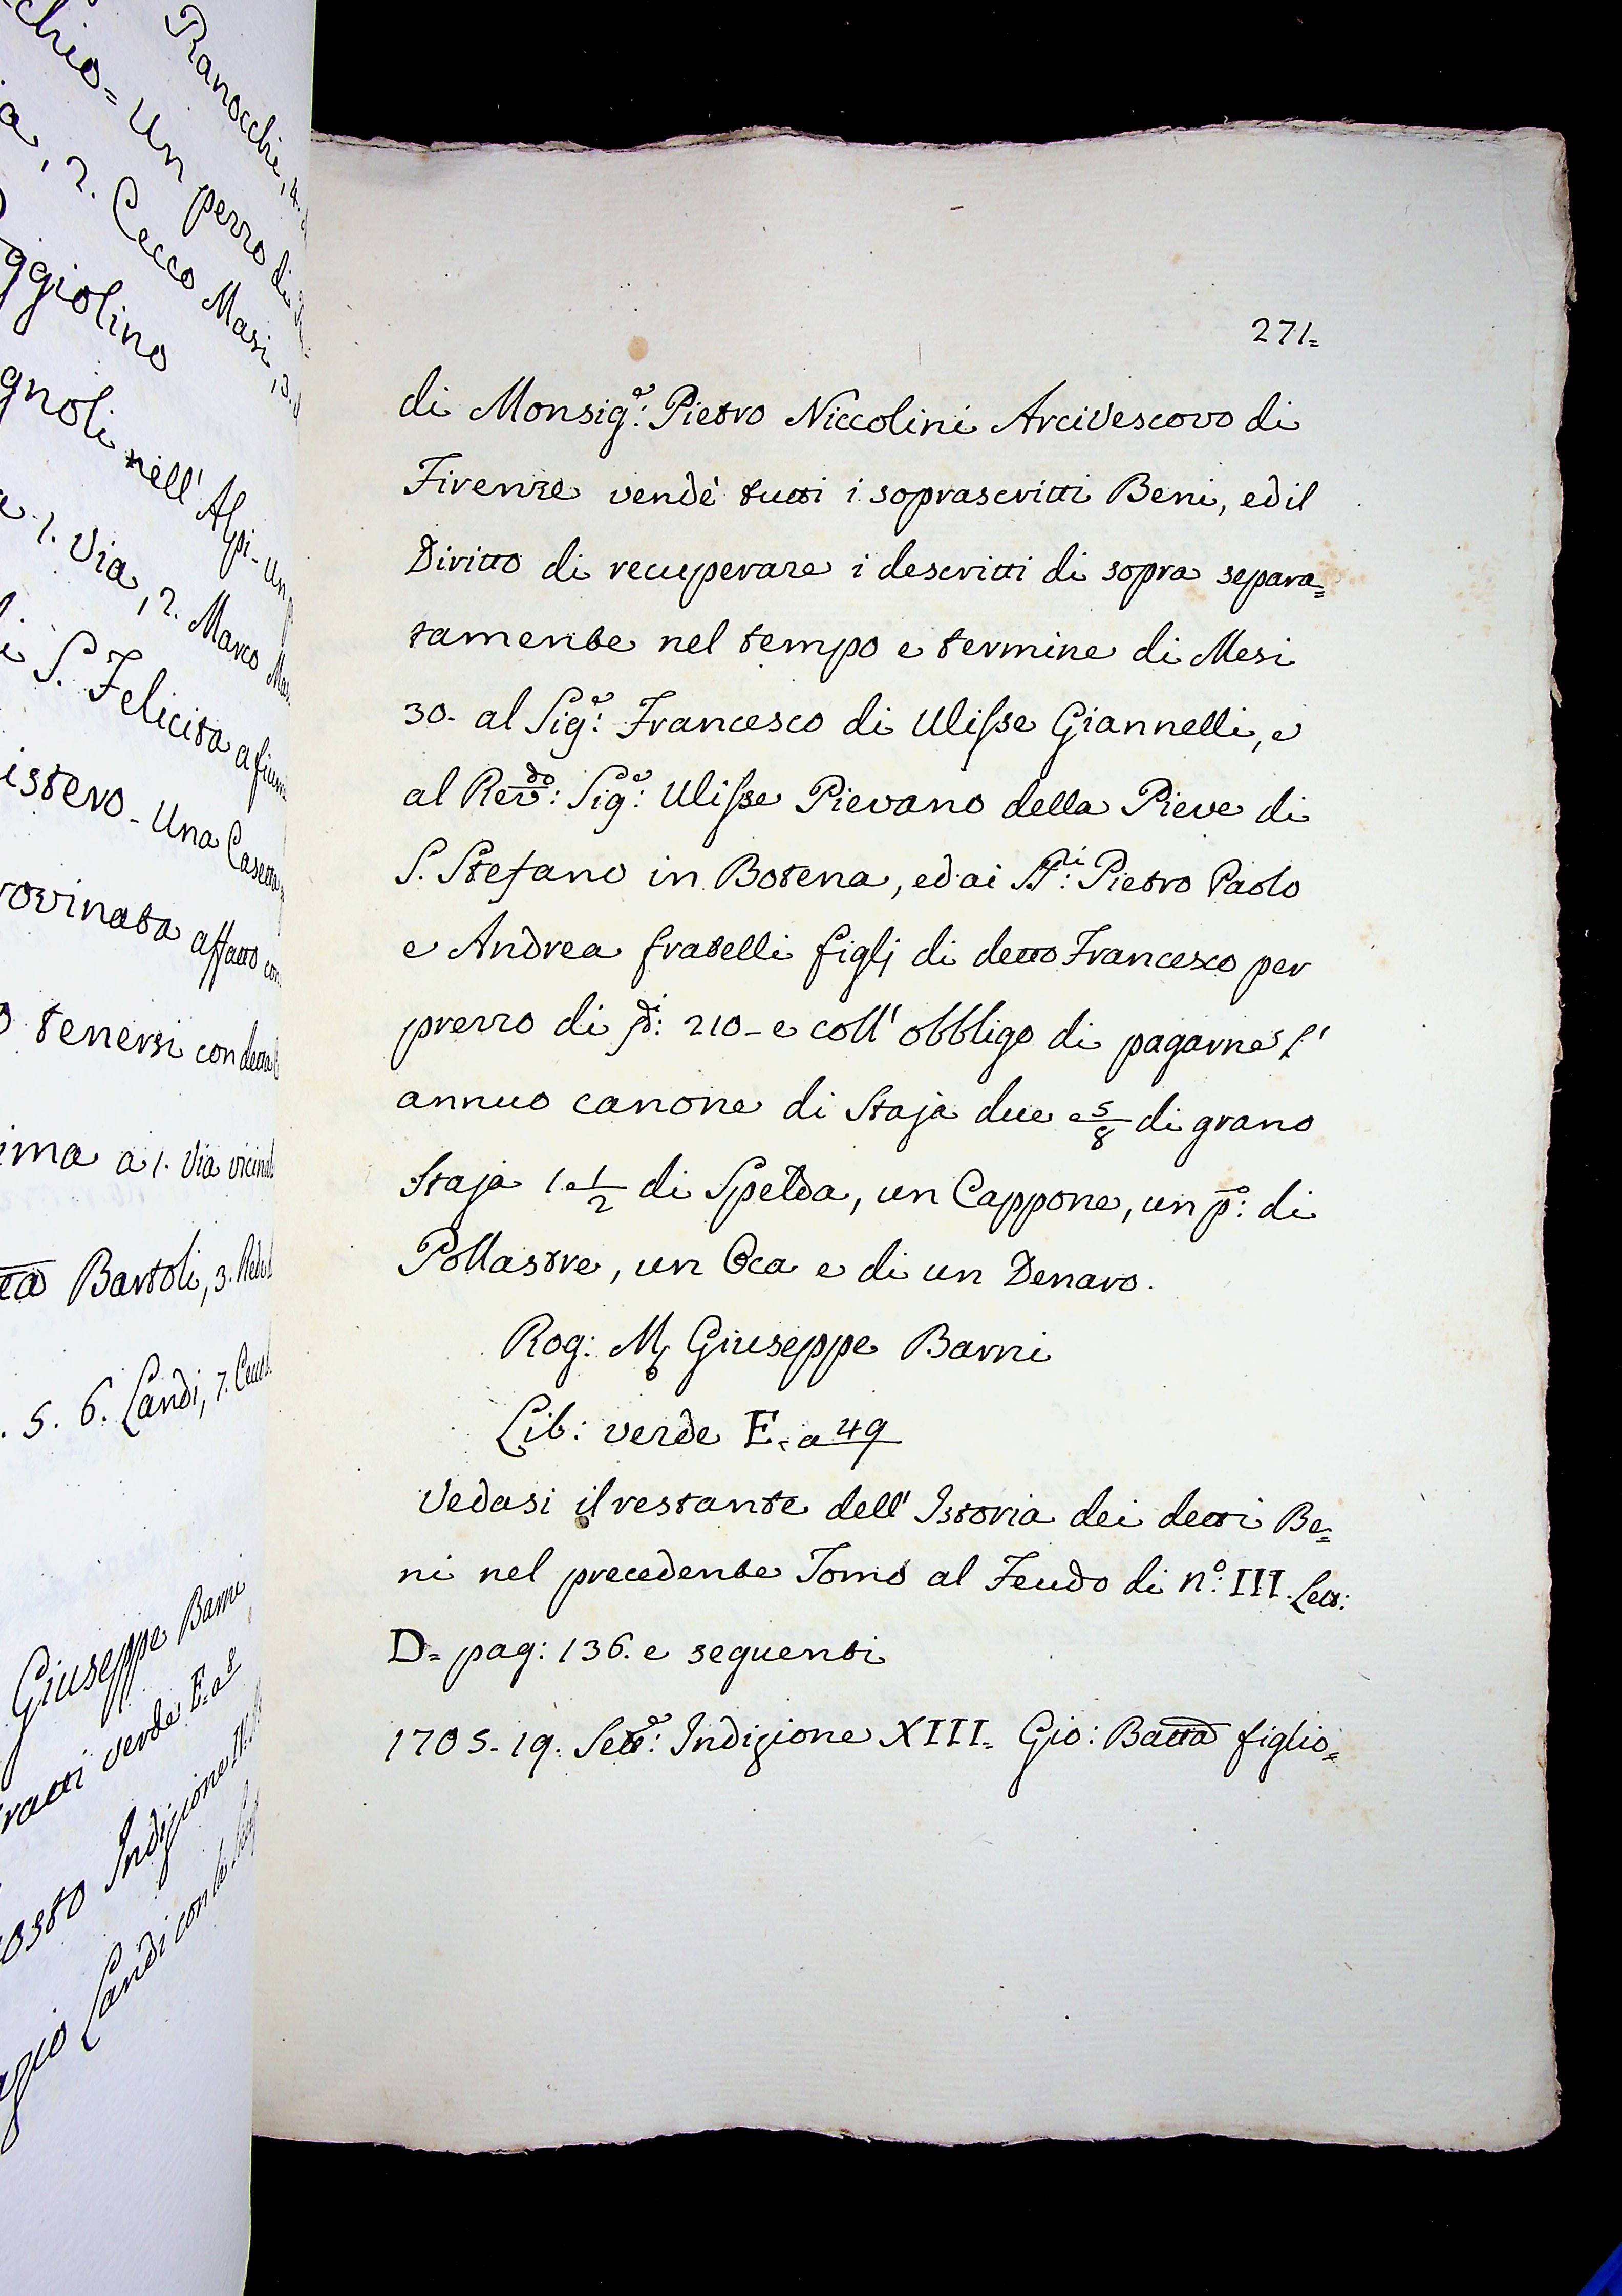 Ranocchi, 4.
chio = Un pezzo di
a, 2. Cecco Masi, 3.
ggiolino
gnoli nell' Alpi - un
1. Via, 2. Marco
i S. Felicita a fium
istero - Una Casetta
rovinata affatto con
o tenersi con detta
ima a 1. Via vicinal
ta Bartoli, 3.
. 5. 6. Landi, 7.
Giuseppe Barni
ratti verde E. a 8
osto Indizione
azio Landi con
271=
di Monsig.e: Pietro Niccolini Arcivescovo di
Firenze vendè tutti i soprascritti Beni, ed il
Diritto di recuperare i descritti di sopra separa=
tamente nel tempo e termine di Mesi
30- al Sig.e: Francesco di Ulisse Giannelli, e
al Rev.do: Sig.e: Ulisse Pievano della Pieve di
S. Stefano in Botena, ed ai SS.ri: Pietro Paolo
e Andrea fratelli figlj di detto Francesco per
prezzo di di: 210- e coll' obbligo di pagarne l'
annuo canone di Staja due e 5/8 di grano
Staja 1. e 1/2 di Spelda, un Cappone, un p.o: di
Pollastre, un Oca e di un Denaro.
Rog: M Giuseppe Barni
Lib: verde E. a 49
Vedasi il restante dell' Istoria dei detti Be=
ni nel precedente Tomo al Feudo di n.o: III. Lett:
D= pag: 136. e seguenti
1705. 19. Sett.e: Indizione XIII= Gio: Batta figlio=